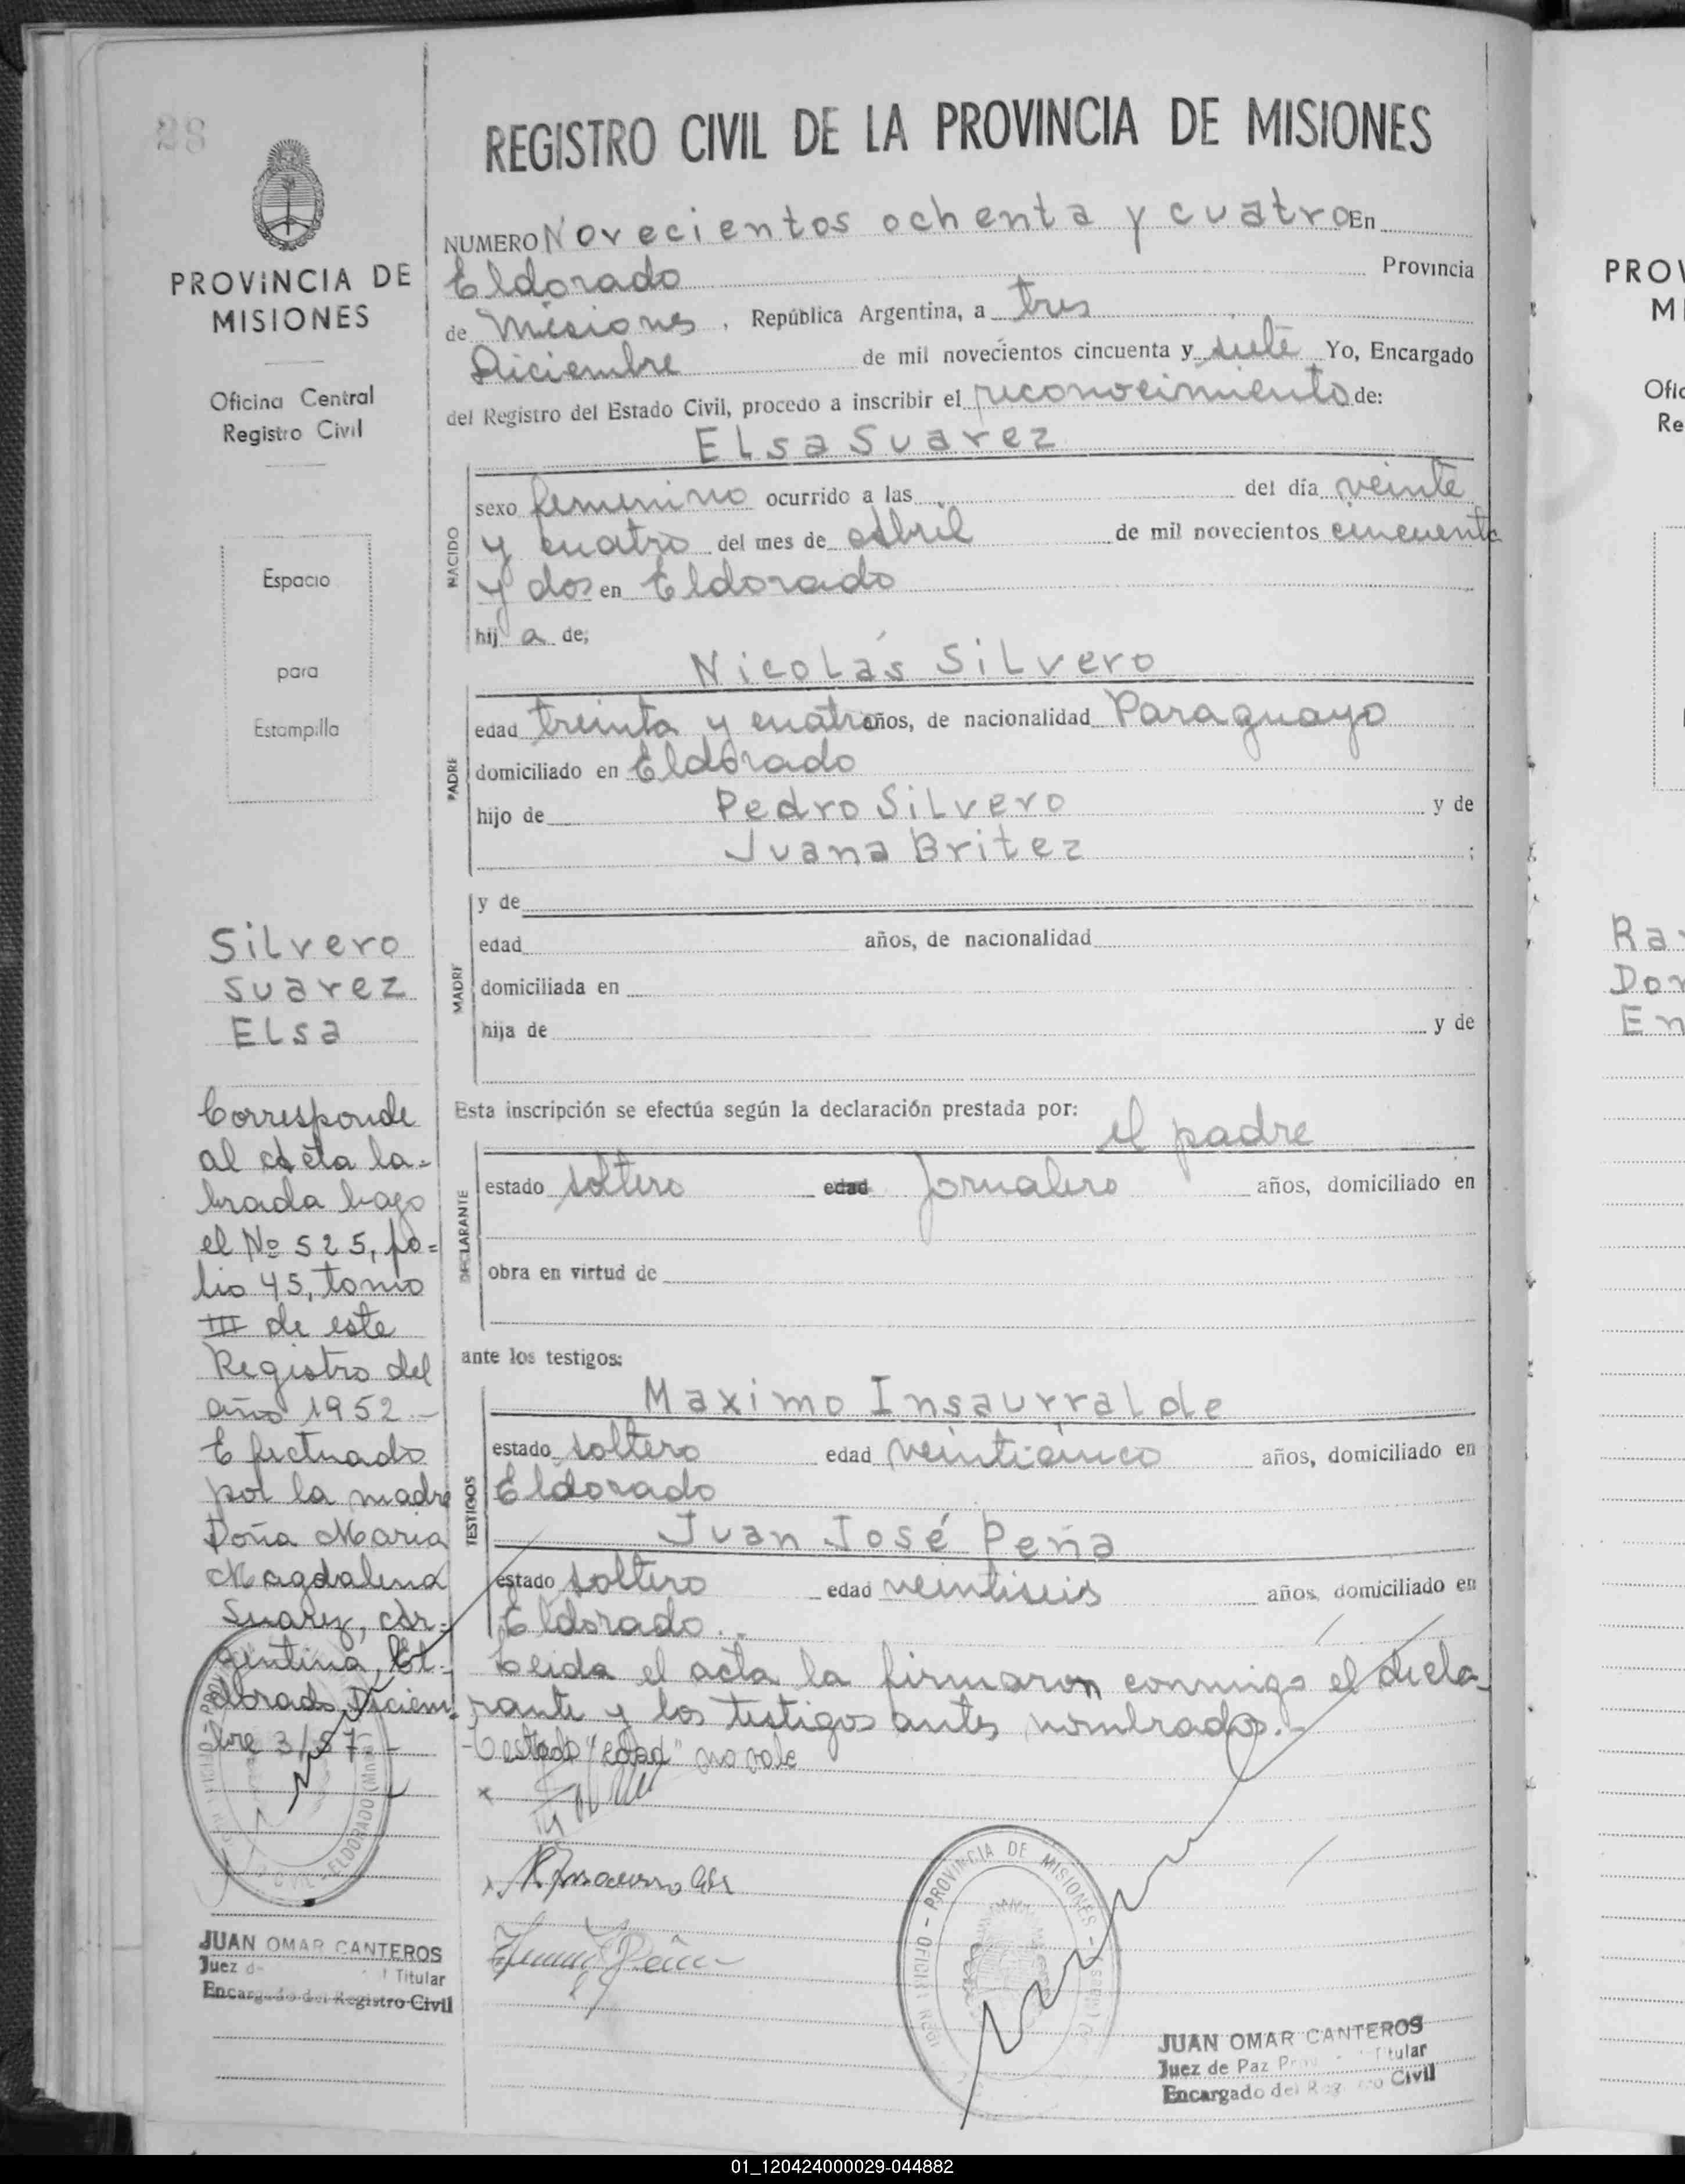 28
PROVINCIA DE
MISIONES
Oficina Central
Registro Civil
Espacio
para
Estampilla
Silvero
Suarez
Elsa
Corresponde
al acta la=
brada bajo
el Nº 525, fo=
lio 45, tomo
III de este
Registro del
año 1952.-
Efectuado
por la madre
Doña Maria
Magdalena
Suarez, Ar=
gentina, El=
dorado, Diciem=
bre 3/57.-
ELDORADO (Mnes)
JUAN OMAR CANTEROS
Juez de Titular
Encargado del Registro Civil
REGISTRO CIVIL DE LA PROVINCIA DE MISIONES
NUMERO Novecientos ochenta y cuatro En
Eldorado Provincia
de Misiones, República Argentina, a tres
Diciembre de mil novecientos cincuenta y siete Yo, Encargado
del Registro del Estado Civil, procedo a inscribir el reconocimiento de:
Elsa Suarez
NACIDO
sexo femenino ocurrido a las del día veinte
y cuatro del mes de Abril de mil novecientos cincuenta
y dos en Eldorado
hij a de;
Nicolás Silvero
PADRE
edad treinta y cuatro años, de nacionalidad Paraguayo
domiciliado en Eldorado
hijo de Pedro Silvero y de
Juana Britez ;
MADRE
y de
edad años, de nacionalidad
domiciliada en
hija de y de
Esta inscripción se efectúa según la declaración prestada por:
el padre
DECLARANTE
estado soltero edad Jornalero años, domiciliado en
obra en virtud de
ante los testigos:
Maximo Insaurralde
TESTIGOS
estado soltero edad veinticinco años, domiciliado en
Eldorado
Juan José Peña
estado soltero edad veintiseis años, domiciliado en
Eldorado..
Leida el acta la firmaron conmigo el decla=
rante y los testigos antes nombrados.-
-Testado "edad" no vale
PROVINCIA DE MISIONES
JUAN OMAR CANTEROS
Juez de Paz Titular
Encargado del Registro Civil
PROV
MI
Ofic
Re
Ra
Dor
En
01_120424000029-044882